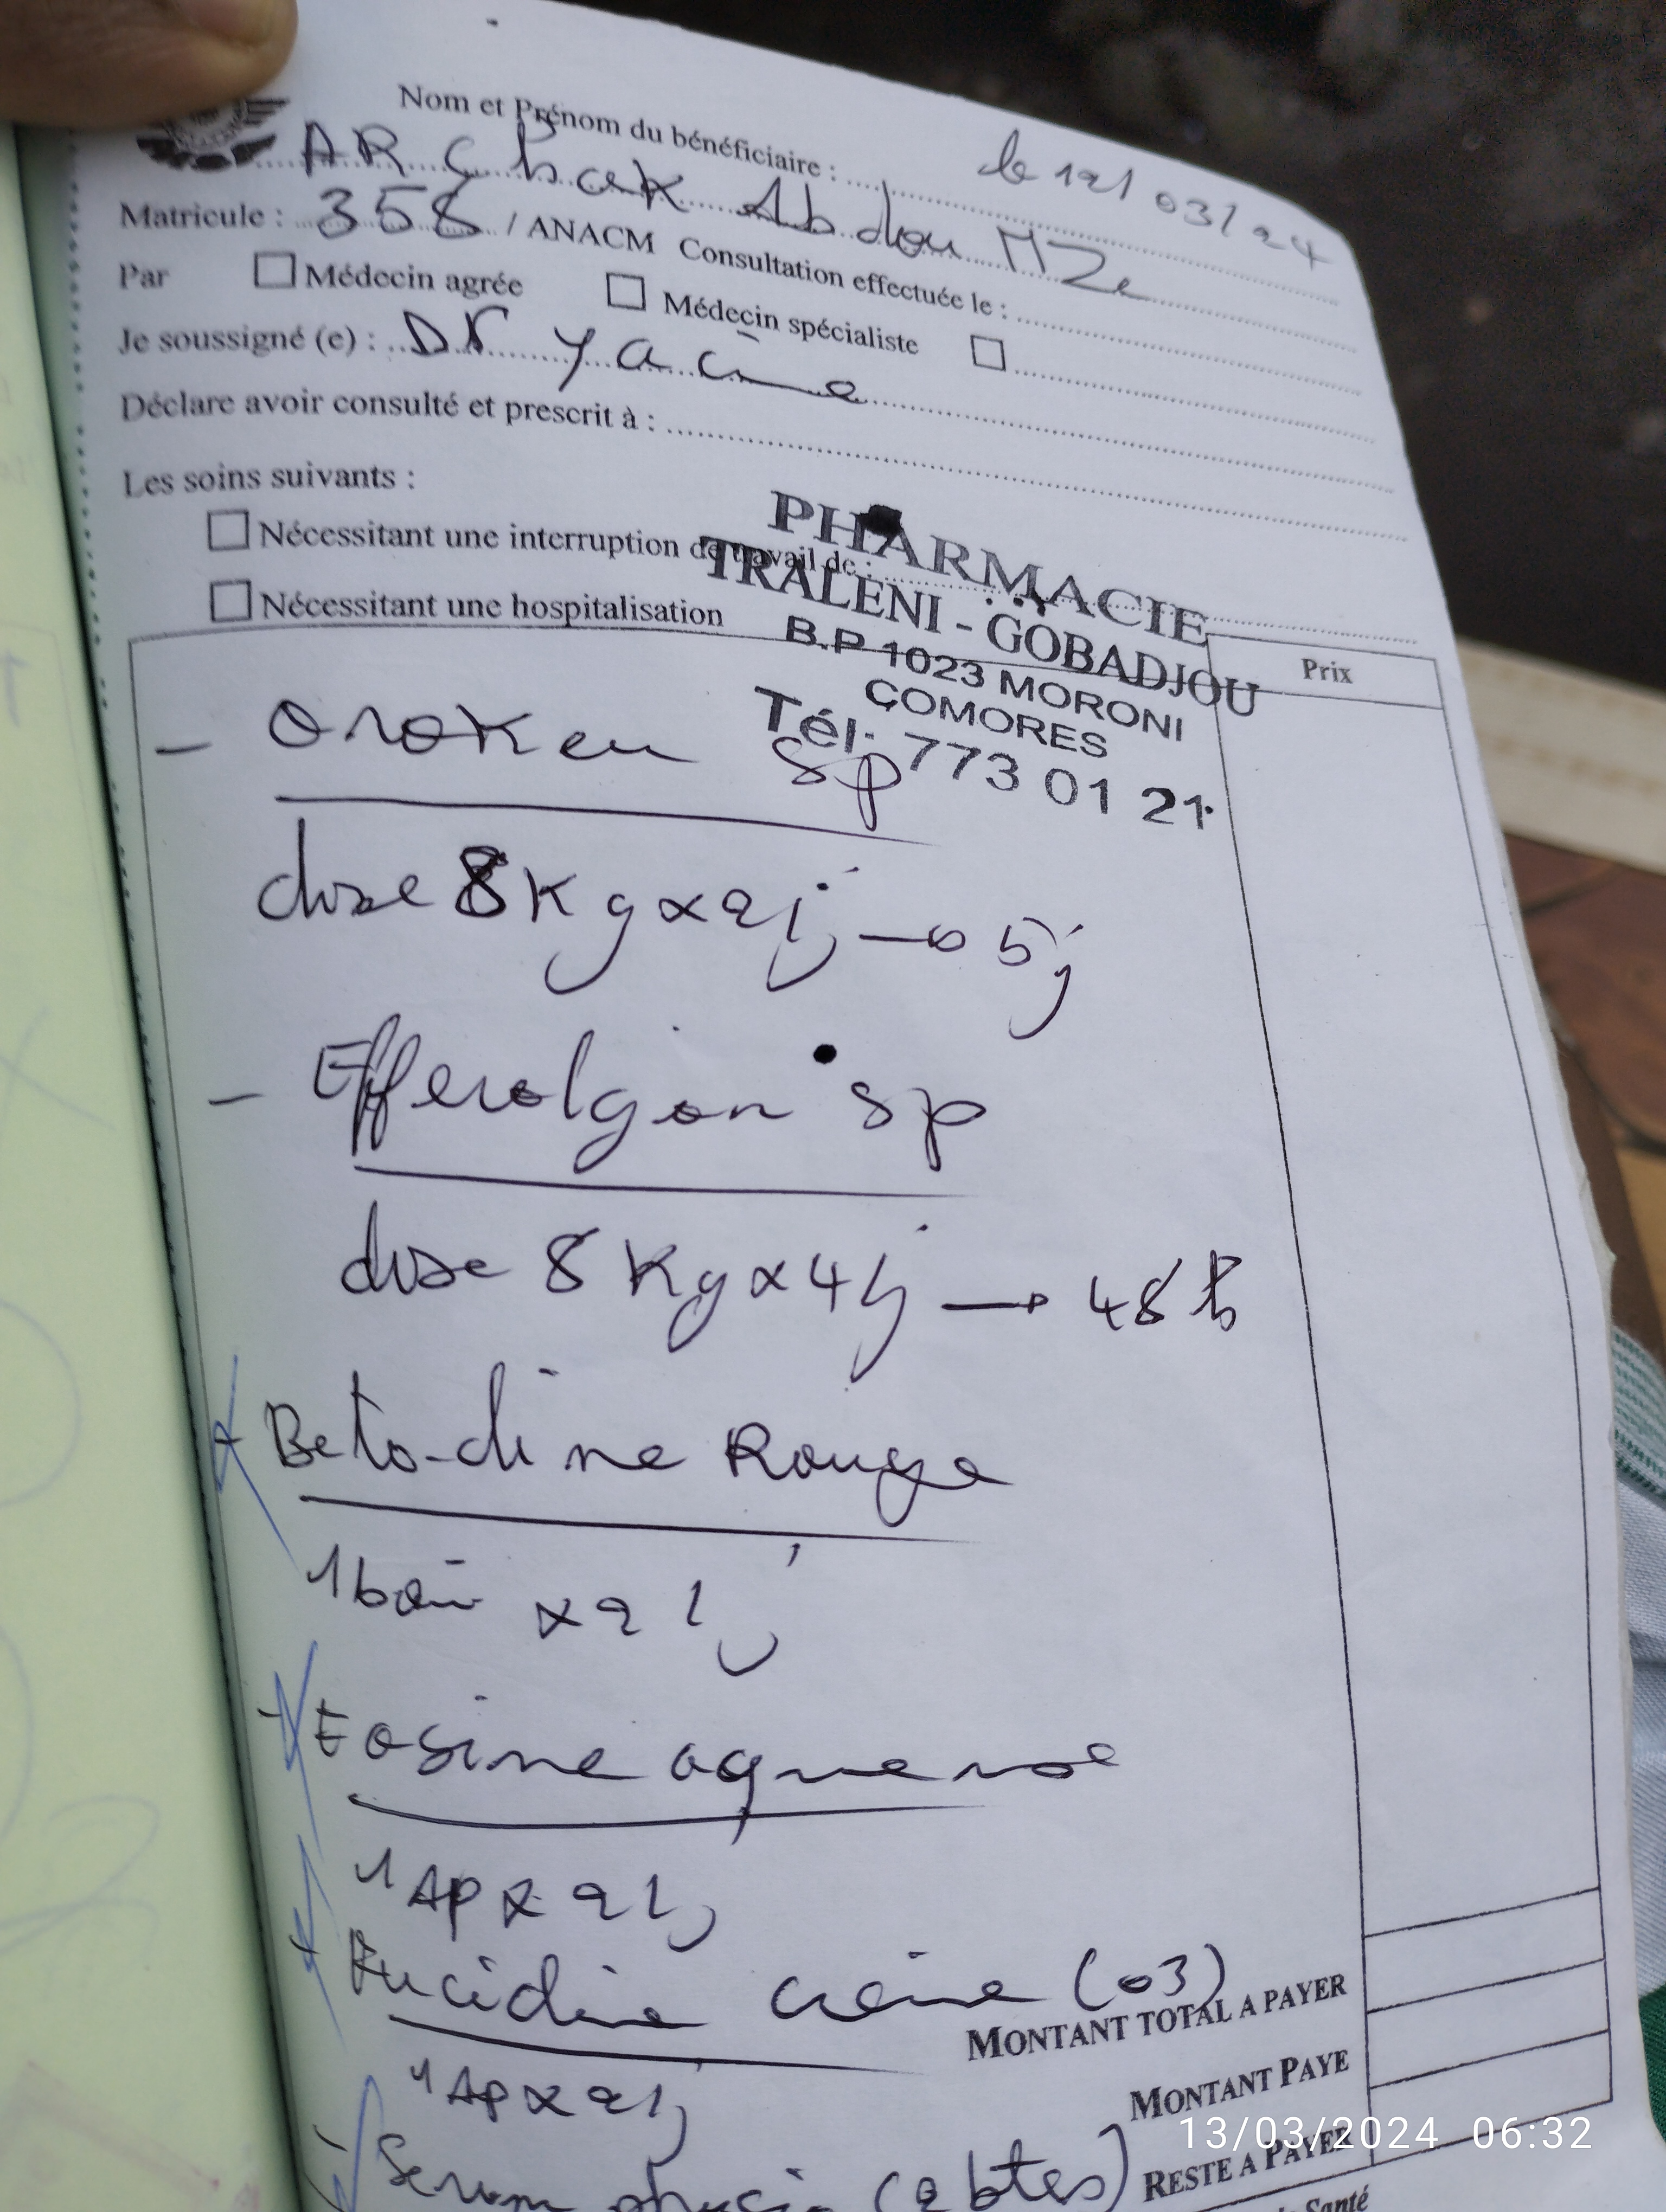 le 12/03/24
Nom et Prénom du bénéficiaire :
AR Chak Abdou MZe
Matricule : 358 / ANACM Consultation effectuée le :
Par Médecin agrée Médecin spécialiste
Je soussigné (e) : DR Yacine
Déclare avoir consulté et prescrit à :
Les soins suivants :
Nécessitant une interruption de travail de :
Nécessitant une hospitalisation
PHARMACIE
TRALENI - GOBADJOU
B.P 1023 MORONI
COMORES
Tél: 773 01 21
Prix
- Oroken sp
dose 8Kg x 2j → 5j
- Efferalgan sp
dose 8Kg x 4j → 48h
- Betadine Rouge
1 bain x 2j
- Eosine aqueuse
1 Ap x 2j
- Fucidine crème (03)
1 Ap x 2j
- Serum physio (2 btes)
MONTANT TOTAL A PAYER
MONTANT PAYE
RESTE A PAYER
Santé
13/03/2024 06:32